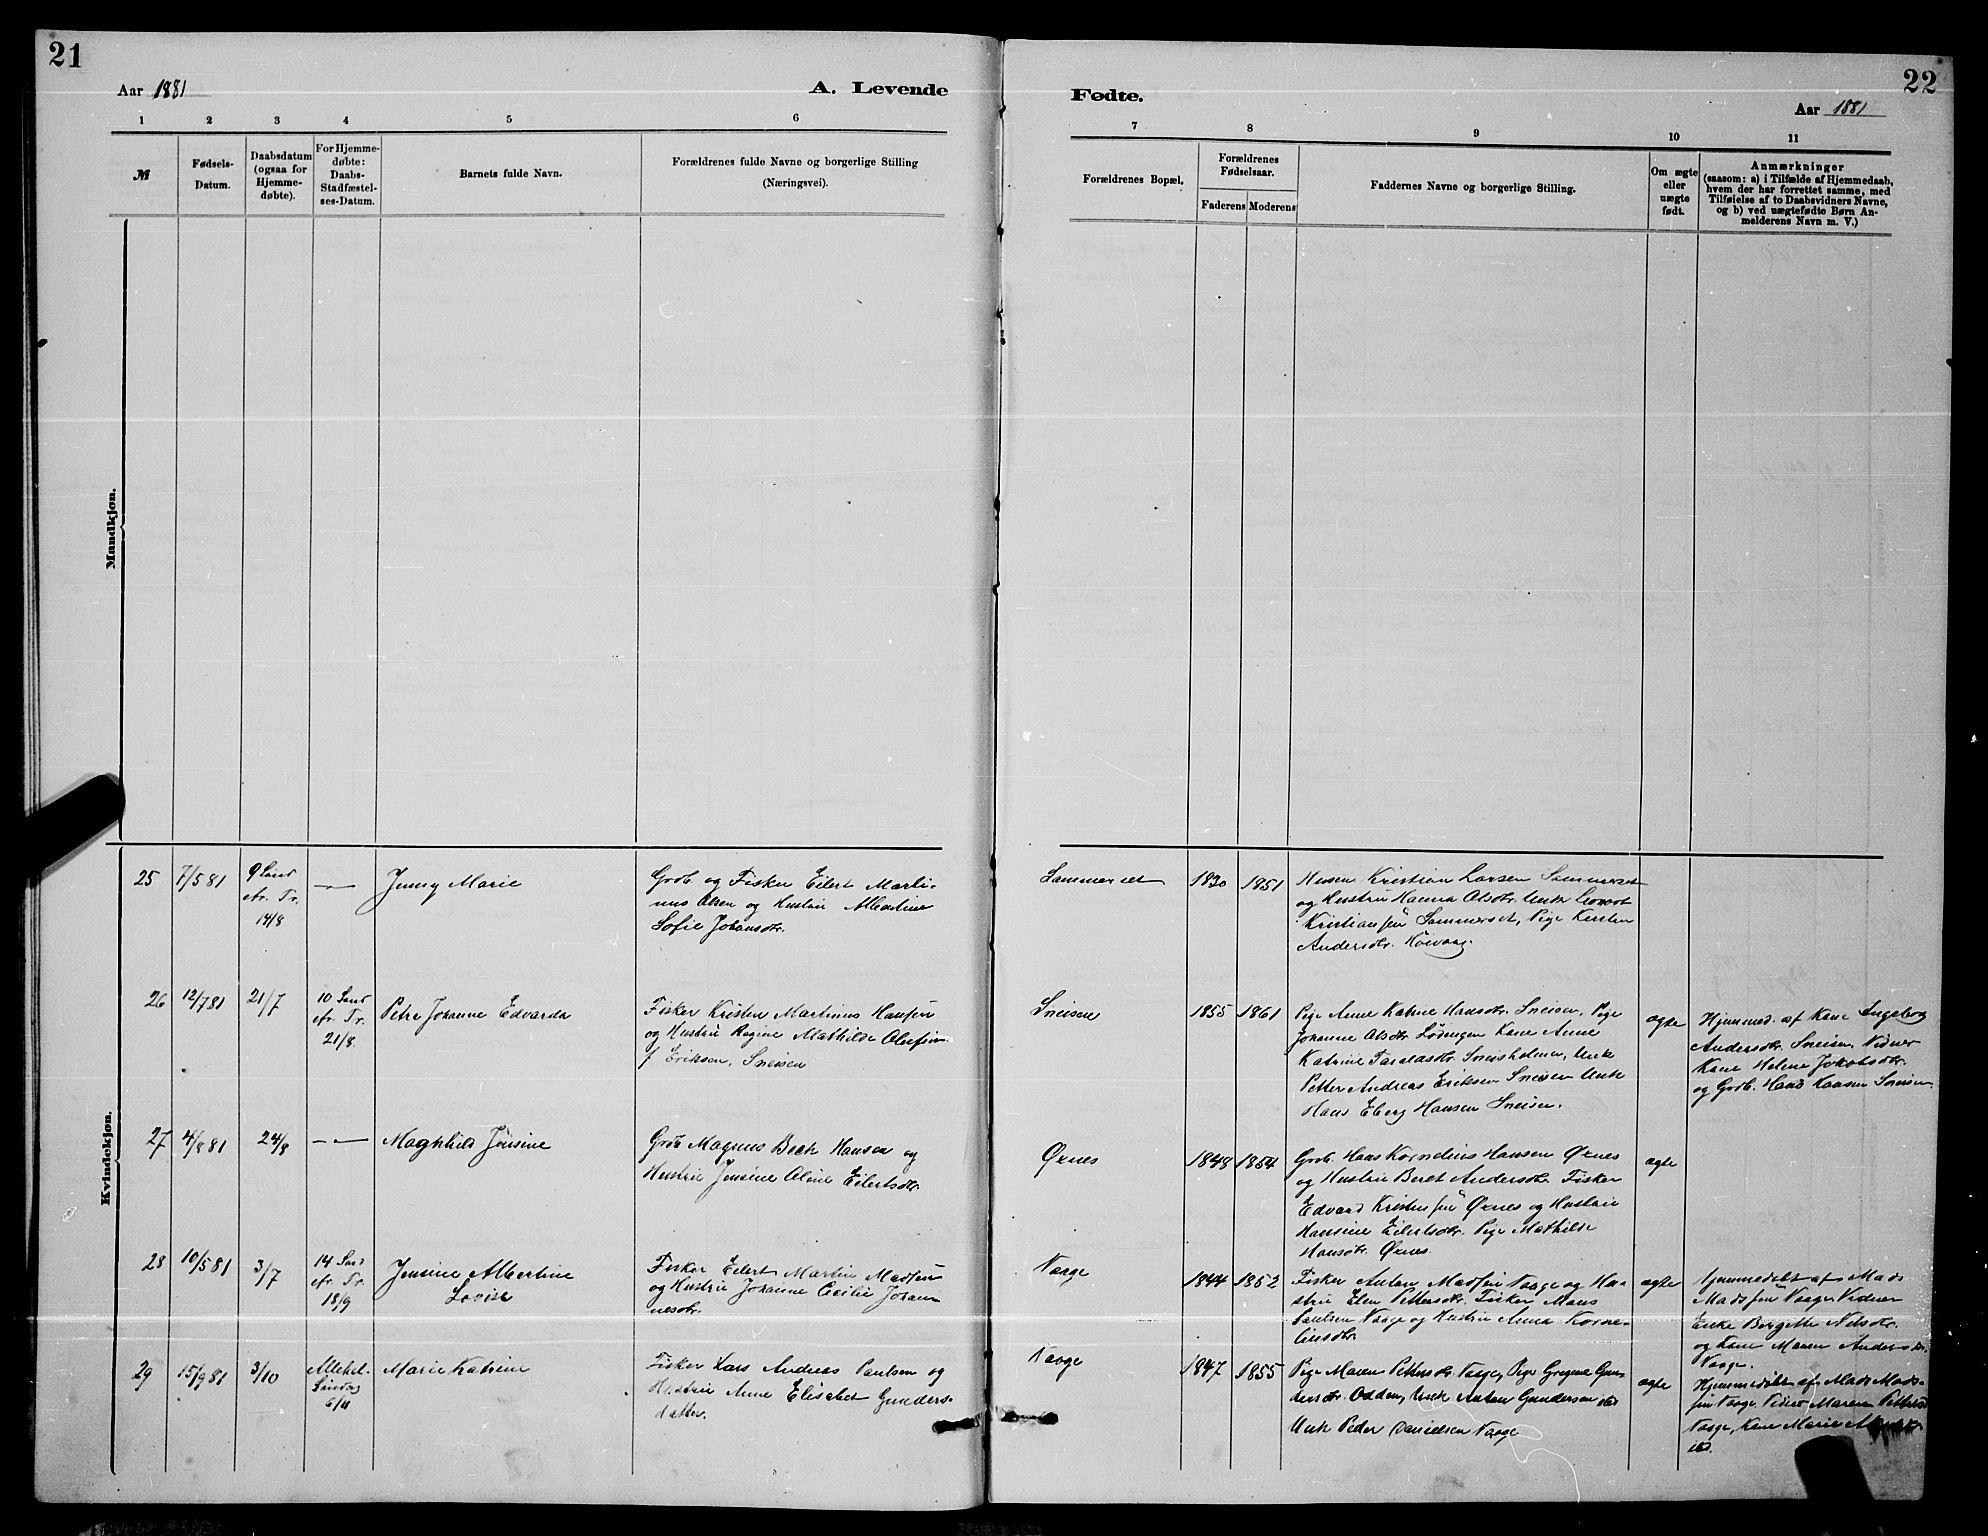 21
Aar 1881
A. Levende
1 2 3 4 5 6
M
Fødsels-
Datum.
Daabsdatum
(ogsaa for
Hjemme-
døbte).
For Hjemme-
døbte:
Daabs-
Stadfæstel-
ses-Datum.
Barnets fulde Navn.
Forældrenes fulde Navne og borgerlige Stilling
(Næringsvei).
Mandkjøn.
Kvindekjøn.
25 7/5 81
9 Sønd
efr. Tr.
14/8
—
Jenny Marie
Grdb. og Fisker Eilert Marti-
nus Olsen og Hustru Albertine
Sofie Johansdtr.
26 12/7 81 21/7
10 Sønd
efr. Tr.
21/8.
Petra Johanne Edvarda
Fisker Kristen Martinus Hansen
og Hustru Regine Mathilde Olufine
f. Eriksen, Sneisen
27 4/8 81 24/8 — —
Maghhild Jensine
Grdb. Magnus Beck Hansen og
Hustru Jensine Oline Eilertsdtr.
28 10/5 81 3/7
14 Sønd
efr. Tr.
18/9
Jensine Albertine
Lovise
Fisker Eilert Martin Madsen
og Hustru Johanne Cecilie Johan-
nesdtr.
29 15/9 81 3/10
Allehel-
Søndag
6/11
Marie Katrine
Fisker Lars Andreas Paulsen og
Hustru Anne Elisabet Gunders-
datter.
22
Fødte.
Aar 1881
7 8 9 10 11
Forældrenes Bopæl.
Forældrenes
Fødselsaar.
Faderens Moderens
Faddernes Navne og borgerlige Stilling.
Om ægte
eller
uægte
født.
Anmærkninger
(saasom: a) i Tilfælde af Hjemmedaab,
hvem der har forrettet samme, med
Tilføielse af to Daabsvidners Navne,
og b) ved uægtefødte Børn An-
melderens Navn m. V.)
Sammerset 1830 1851
Kristian Larsen Sammerset
og Hustru Hanna Olsdtr. Unk
Kristiansen Sammerset, Pige Kersten
Andersdtr.
Sneisen 1855 1861
Pige Anne Katrine Hansdtr. Sneisen, Pige
Johanne Olsdtr. Lødingen Kone Anne
Katrine Sneisholmen, Unk
Petter Andreas Eriksen Sneisen Unk
Hans Eberg Hansen Sneisen.
ægte
Hjemmed. af Kone Ingeborg
Andersdtr. Sneisen, Vidner
Kone Helene Jakobsdtr.
og Grdb. Hans Hansen Sneisen
Øxnes 1848 1854
Grdb. Hans Kornelius Hansen Øxnes
og Hustru Beret Andersdtr. Fisker
Edvard Kristensen Øxnes og Hustru
Hansine Eilertsdtr. Pige Mathilde
Hansdtr. Øxnes.
ægte
Vaage 1844 1852
Fisker Anton Madsen Vaage og Hu-
stru Elen Pettersdtr. Fisker Mons
Paulsen Vaage og Hustru Anna Korne-
liusdtr.
ægte
Hjemmedøbt af Mads
Madsen Vaage. Vidner
Enke Bergitte Nilsdtr.
og Kone Maren Andersdtr.
Vaage.
Vaage 1847 1855
Pige Maren Pettersdtr. Vaage, Pige Gun-
dersdtr. Odden, Unk Anton Gundersen ibd
Unk Peder Danielsen Vaage
ægte
Hjemmedøbt af Mads Mad-
sen Vaage. Vidner Maren Pettersd
Vaage, Kone Marie
ibd.